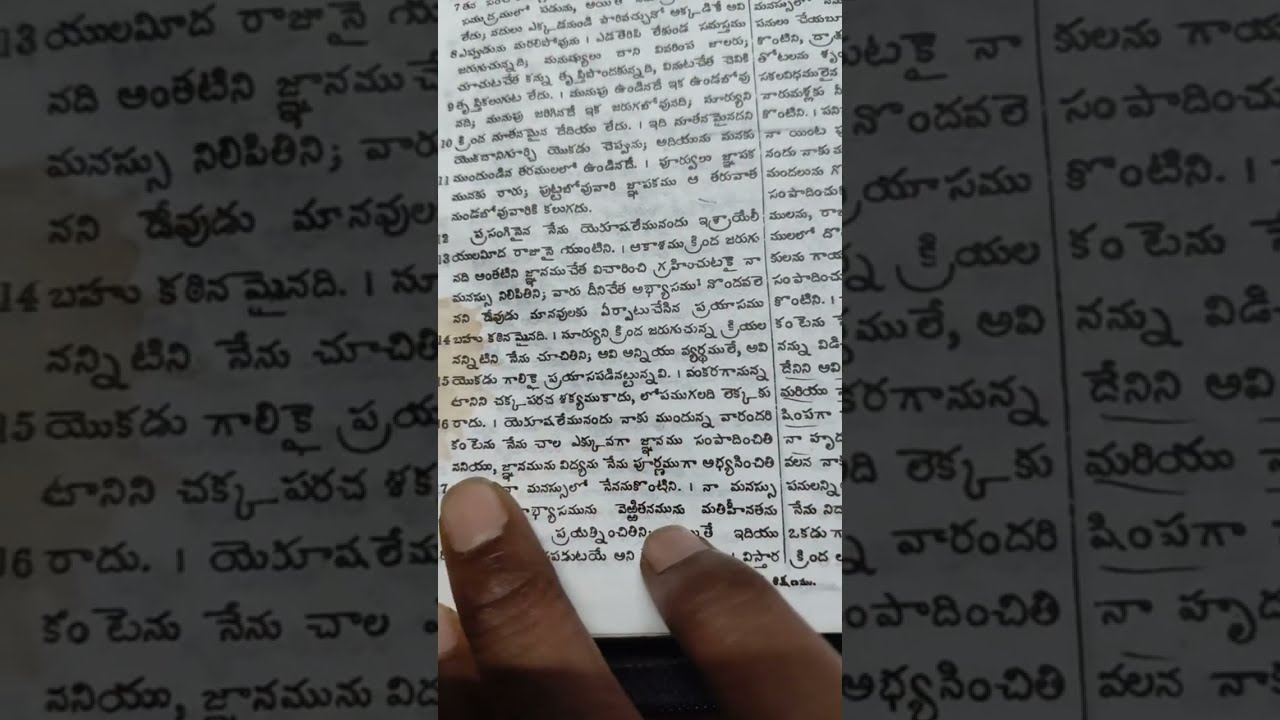 సముద్రములో పడును, అయితే
లేదు; నదులు ఎక్కడనుండి పారివచ్చునో అక్కడికే అవి
8 ఎప్పుడును మరలిపోవును. । ఎడతెరిపి లేకుండ సమస్తము
జరుగుచున్నది; మనుష్యులు దాని వివరింప జాలరు;
చూచుటచేత కన్ను తృప్తిపొందకున్నది, వినుటచేత చెవికి
9 తృప్తికలుగుట లేదు. । మునుపు ఉండినదే ఇక ఉండబోవు
నది; మునుపు జరిగినదే ఇక జరుగబోవునది; సూర్యుని
10 క్రింద నూతనమైన దేదియు లేదు. । ఇది నూతనమైనదని
యొకదానిగూర్చి యొకడు చెప్పును; అదియును మనకు
11 ముందుండిన తరములలో ఉండినదే. । పూర్వులు జ్ఞాపక
మునకు రారు; పుట్టబోవువారి జ్ఞాపకము ఆ తరువాత
నుండబోవువారికి కలుగదు.
12 ప్రసంగినైన నేను యెరూషలేమునందు ఇశ్రాయేలీ
13 యులమీద రాజునై యుంటిని. । ఆకాశము క్రింద జరుగు
నది అంతటిని జ్ఞానముచేత విచారించి గ్రహించుటకై నా
మనస్సు నిలిపితిని; వారు దీనిచేత అభ్యాసము¹ నొందవలె
నని దేవుడు మానవులకు ఏర్పాటుచేసిన ప్రయాసము
14 బహు కఠినమైనది. । సూర్యుని క్రింద జరుగుచున్న క్రియల
నన్నిటిని నేను చూచితిని; అవి అన్నియు వ్యర్థములే, అవి
15 యొకడు గాలికై ప్రయాసపడినట్టున్నవి. । వంకరగానున్న
దానిని చక్కపరచ శక్యముకాదు, లోపముగలది లెక్కకు
16 రాదు. । యెరూషలేమునందు నాకు ముందున్న వారందరి
కంటెను నేను చాల ఎక్కువగా జ్ఞానము సంపాదించితి
ననియు, జ్ఞానమును విద్యను నేను పూర్ణముగా అభ్యసించితి
నా మనస్సులో నేననుకొంటిని. । నా మనస్సు
భ్యాసమును వెఱ్ఱితనమును మతిహీనతను
ప్రయత్నించితిని; ఇదియు
అని విస్తార
మనస్సులో
పనులు చేయబూ
కొంటిని, ద్రాక్ష
తోటలను శృం
సకలవిధములైన
నారుమళ్లకు నీ
కొంటిని. । పని
నా యింట పు
నందు నాకు ము
మందలును గొ
సంపాదించు
ములను, రాజ
ములలో దొ
కులను గాయ
సంపాదించు
కొంటిని. ।
కంటెను నే
నన్ను విడి
దేనిని అవి
మరియు
షింపగా
నా హృద
వలన నా
పనులన్ని
నేను నిద
ఒకడు గా
క్రింద
శిక్షణము.